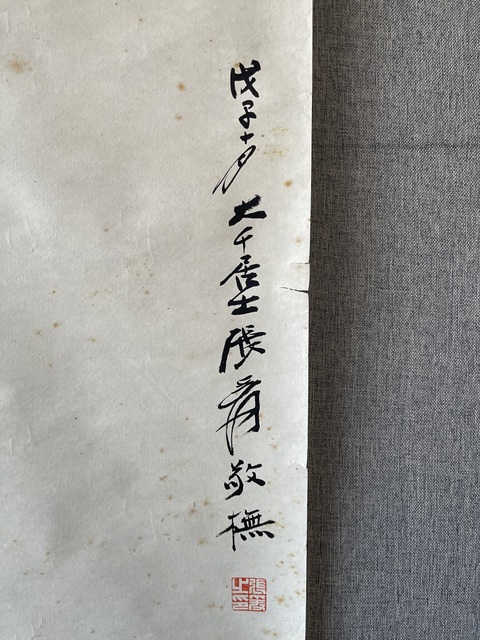 戊子十月大千居士張爰敬橅
張爰之印